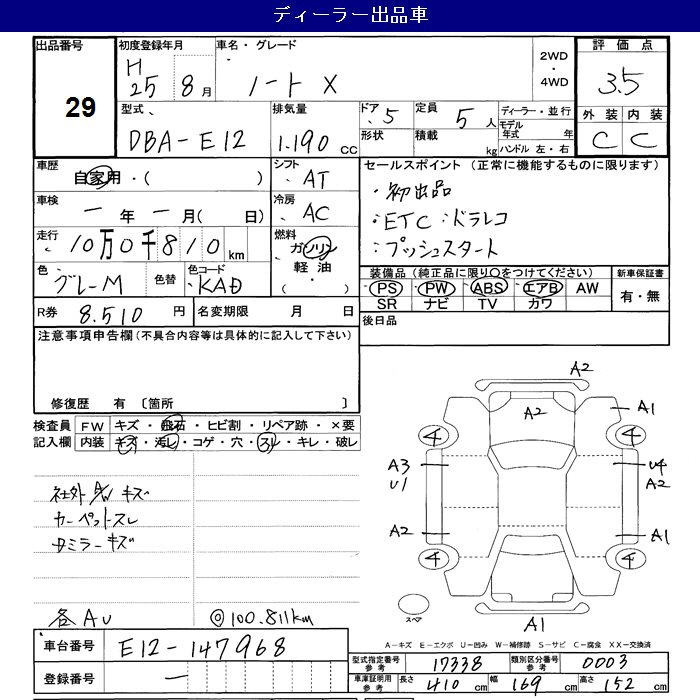 ディーラー出品車
出品番号
29
初度登録年月
H
25 8月
車名・グレード
ノート X
2WD
・
4WD
評価点
3.5
外装 内装
C C
型式
DBA-E12
排気量
1.190 cc
ドア 5
形状
定員 5人
積載 kg
ディーラー・並行
モデル年式 年
ハンドル 左・右
車歴
自家用・( )
シフト
AT
セールスポイント (正常に機能するものに限ります)
・初出品
・ETC・ドラレコ
・プッシュスタート
車検
ー年ー月( 日)
冷房
AC
走行
10万0千810 km
燃料
ガソリン
軽油
( ・ )
色
グレーM
色替
色コード
KAD
装備品 (純正品に限り○をつけてください)
・PS・PW・ABS・エアB・AW
SR ナビ TV カワ
新車保証書
有・無
R券 8.510円
名変期限 月 日
後日品
注意事項申告欄 (不具合内容等は具体的に記入して下さい)
修復歴 有 〔箇所 〕
検査員記入欄
FW キズ・飛石・ヒビ割・リペア跡・×要
内装 キズ・汚レ・コゲ・穴・スレ・キレ・破レ
社外A/Wキズ
カーペットスレ
Rミラーキズ
各AU
◎100.811km
A2
A2
A1
4
4
A3
U1
U4
A2
A2
A1
4
4
スペア
A1
A-キズ E-エクボ U-凹み W-補修跡 S-サビ C-腐食 XX-交換済
車台番号 E12-147968
登録番号 ー
型式指定番号 参考 17338
類別区分番号 参考 0003
車庫証明用 参考
長さ 410 cm
幅 169 cm
高さ 152 cm